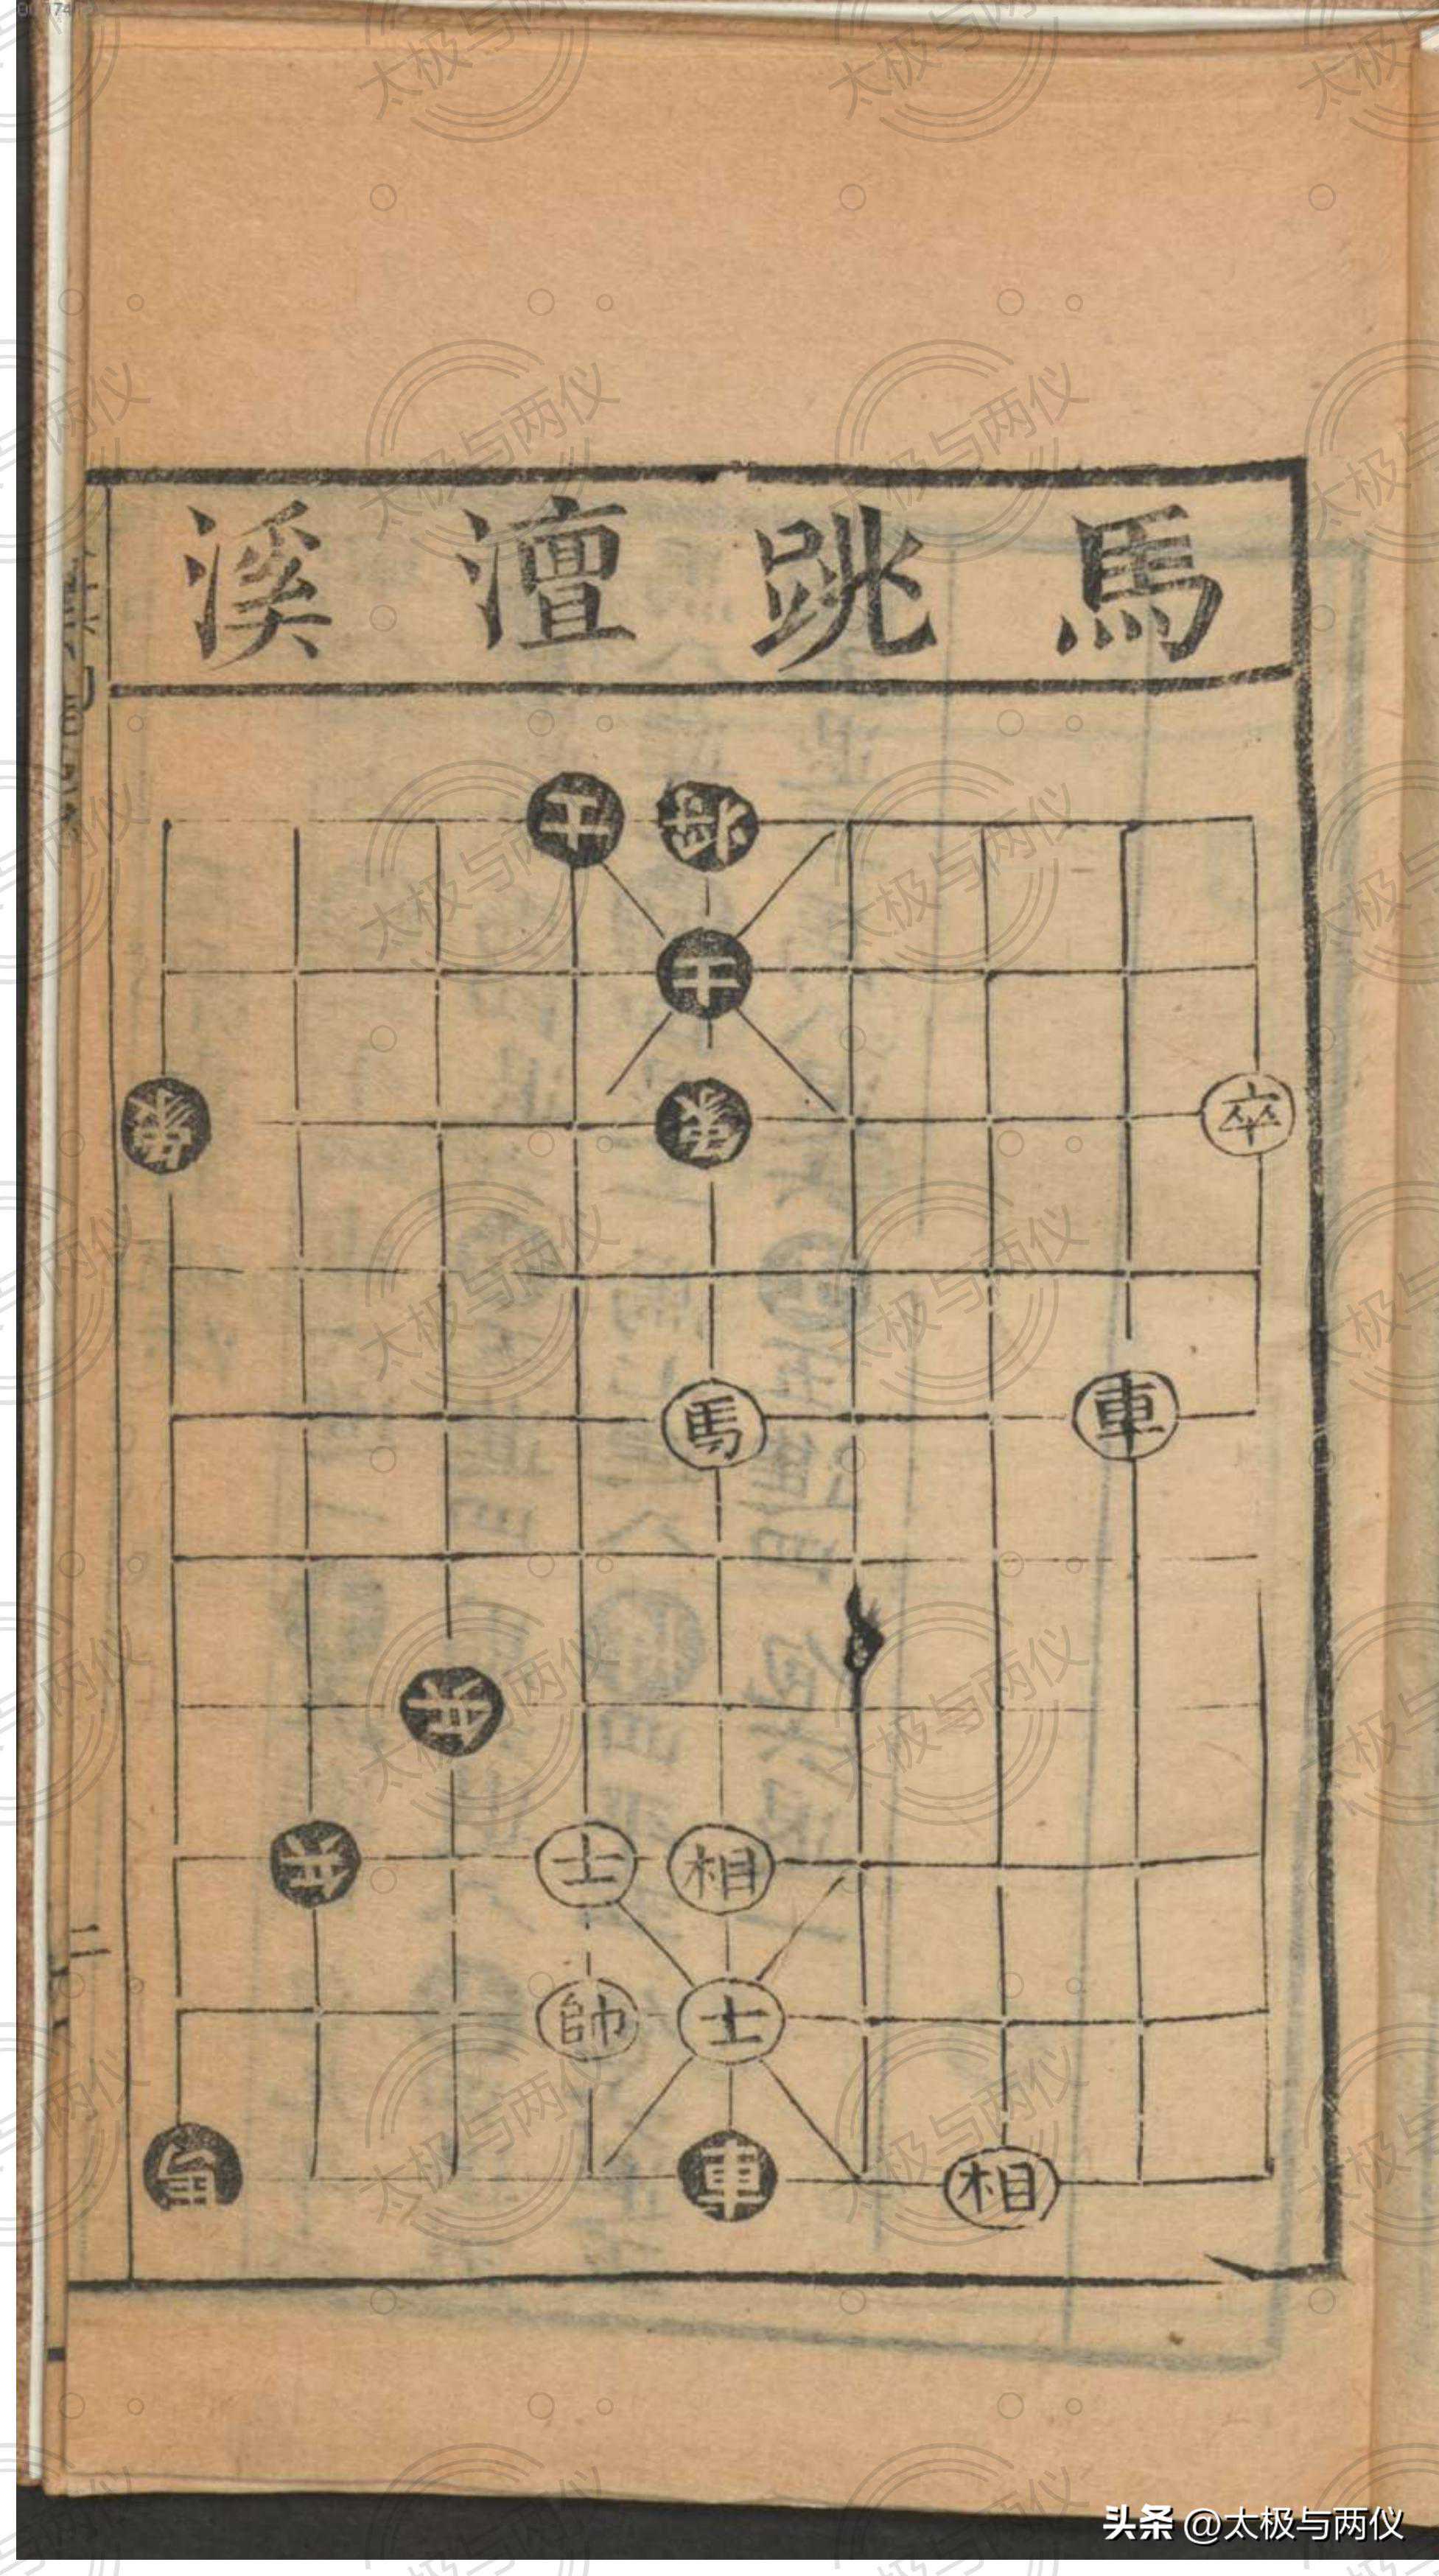 馬跳澶溪
士 將
士
象 象 卒
馬 車
卒
卒 士 相
帥 士
車 相
二
头条 @太极与两仪
太极与两仪